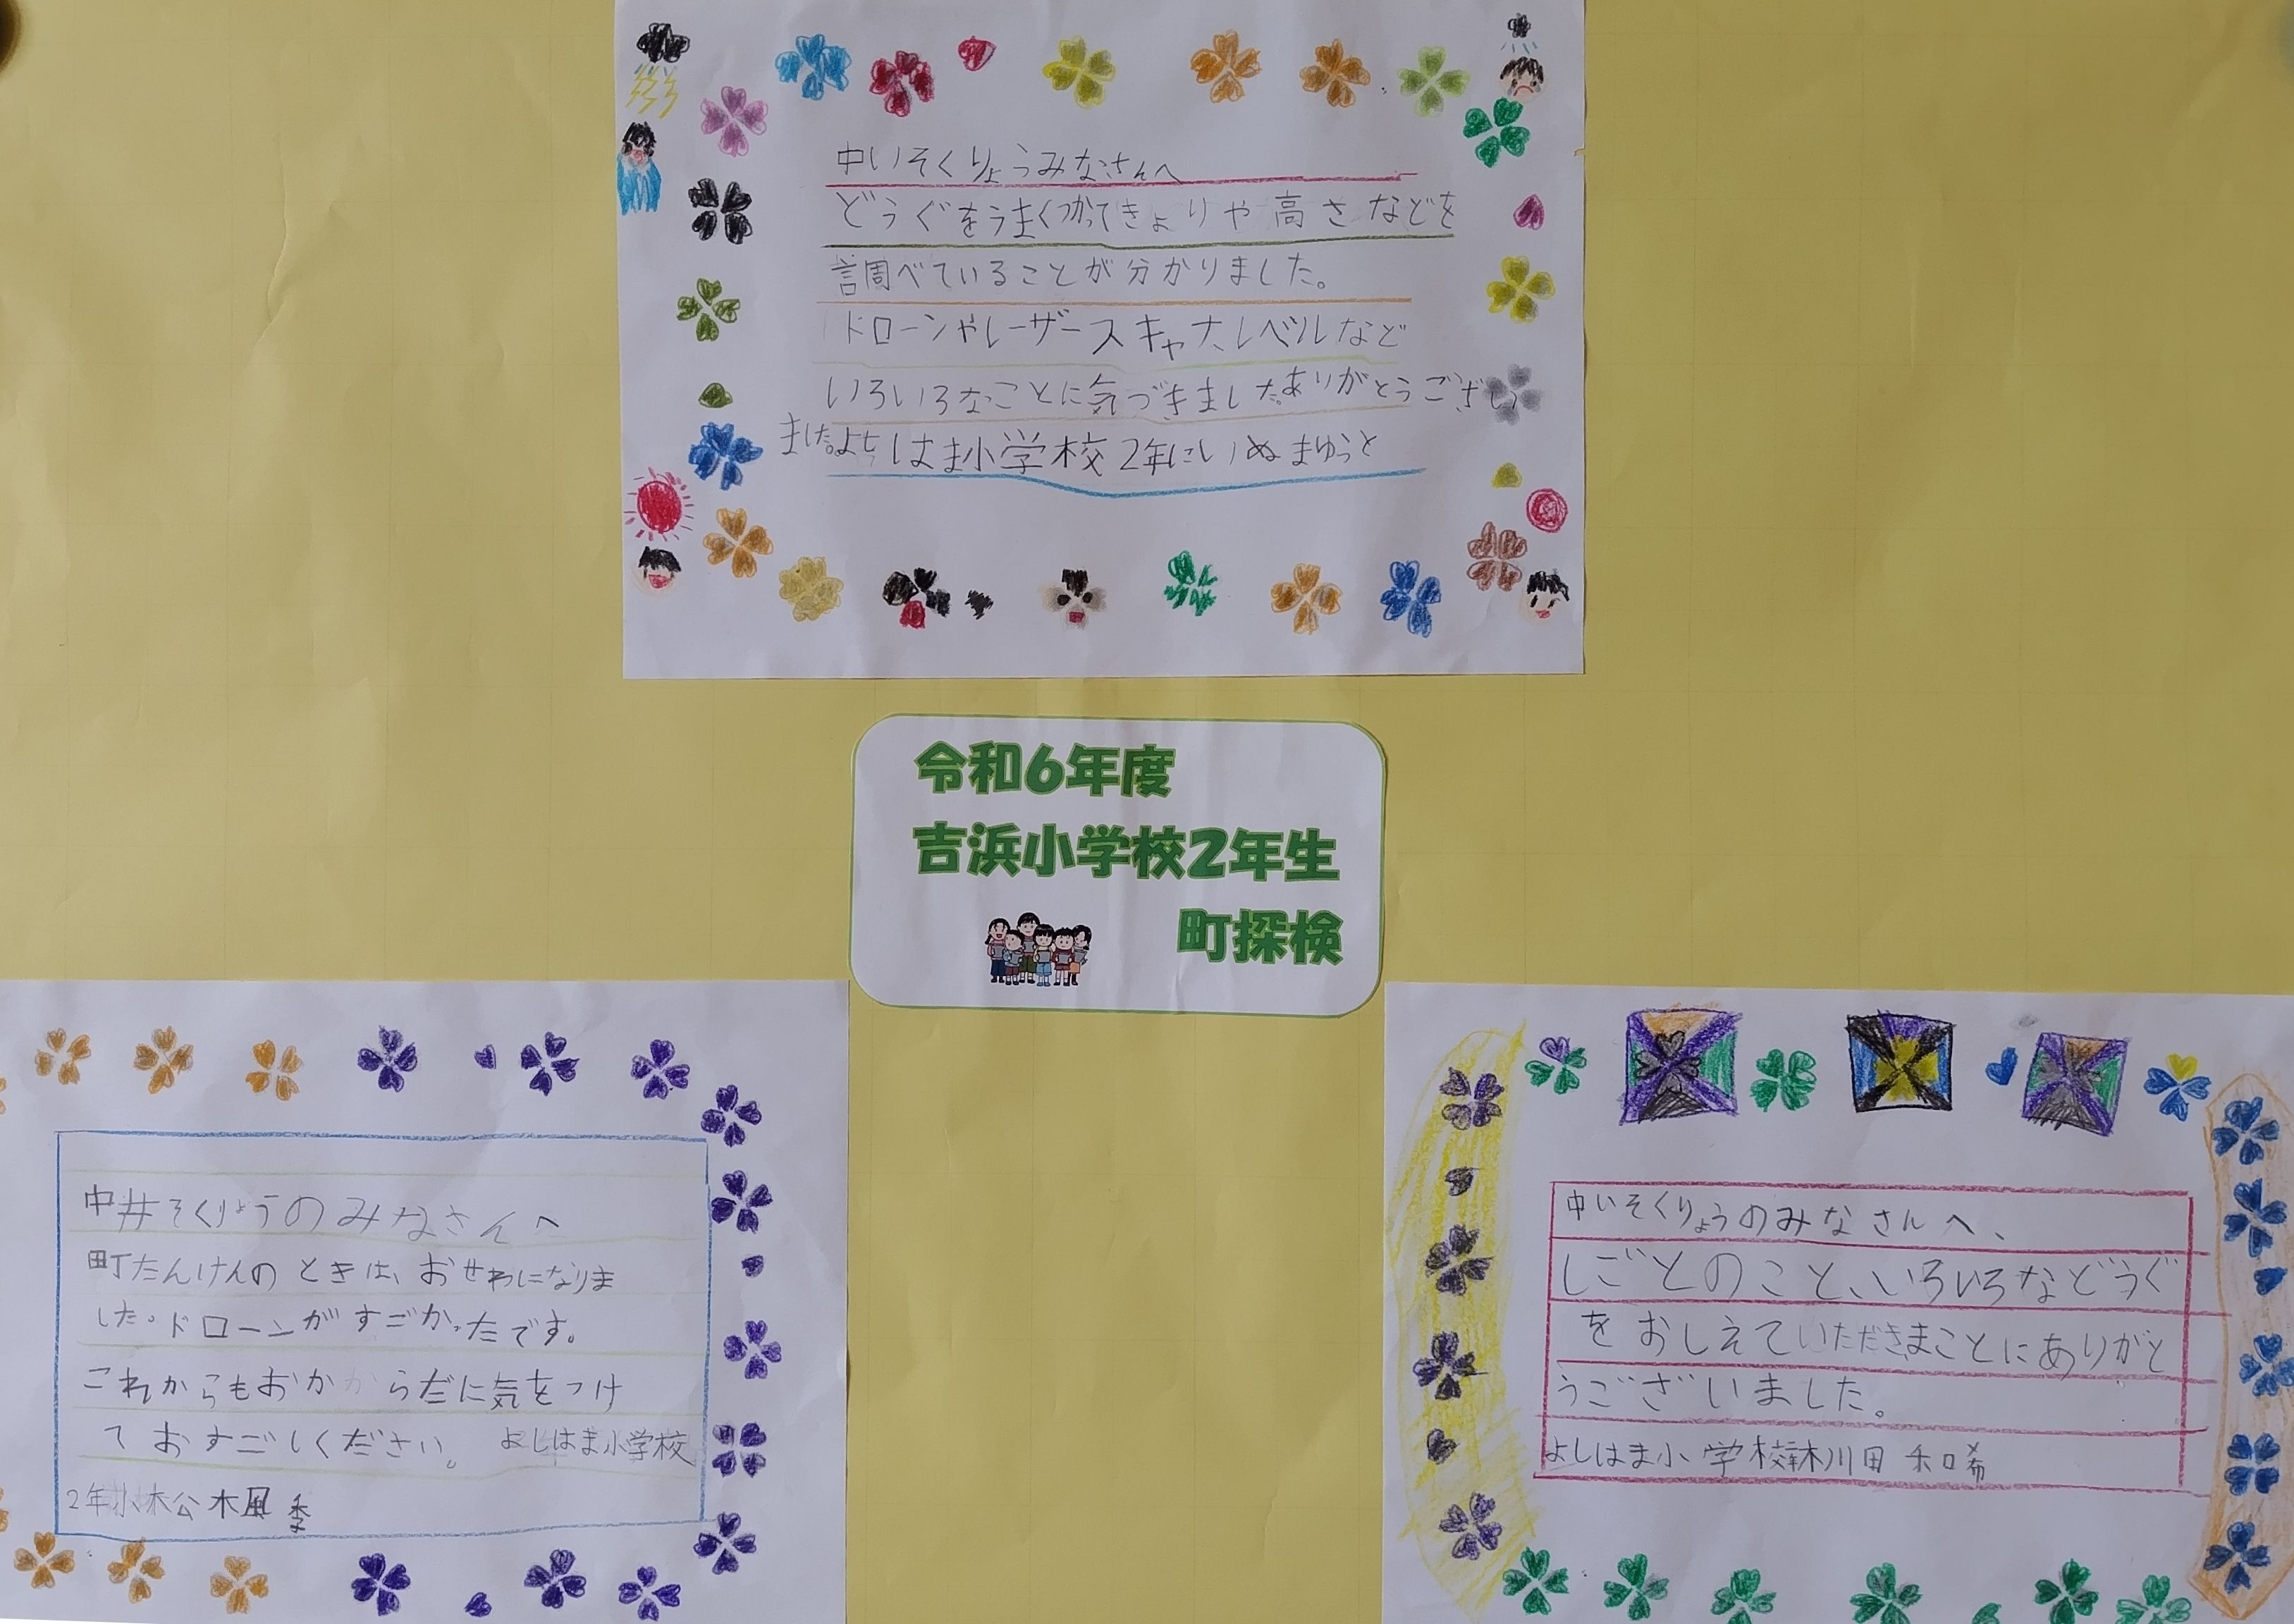 中いそくりょうみなさんへ
どうぐをうまくつかってきょりや高さなどを
調べていることが分かりました。
ドローンやレーザースキャナ、レベルなど
いろいろなことに気づきました。ありがとうござい
ました。よしはま小学校2年にいぬまゆうと
令和6年度
吉浜小学校2年生
町探検
中井そくりょうのみなさんへ
町たんけんのときは、おせわになりま
した。ドローンがすごかったです。
これからもおからだに気をつけ
ておすごしください。 よしはま小学校
2年小松楓季
中いそくりょうのみなさんへ、
しごとのこと、いろいろなどうぐ
をおしえていただきまことにありがと
うございました。
よしはま小学校 川田 和希